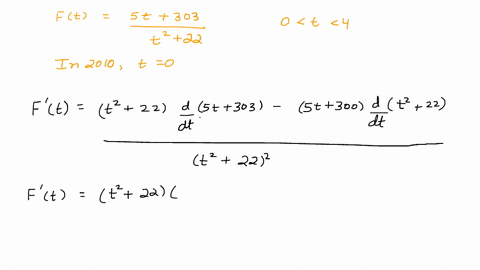 F(t) = 5t + 303 / t²+22 0 < t < 4
In 2010, t = 0
F'(t) = (t² + 22) d/dt (5t + 303) - (5t + 300) d/dt (t² + 22) / (t² + 22)²
F'(t) = (t² + 22) (